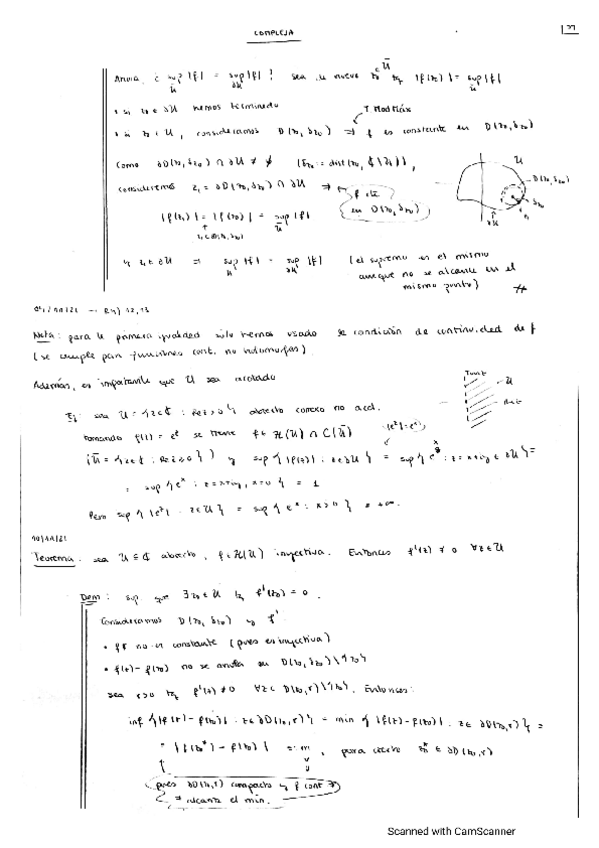 COMPLEJA
Ahora, ¿ sup |f| = sup |f| ? sea z₀ ∈ Ū tq |f(z₀)| = sup |f|
• si z₀ ∈ ∂U hemos terminado
T. Mod Máx
• si z₀ ∈ U, consideramos D(z₀, δz₀) ⇒ f es constante en D(z₀, δz₀)
Como ∂D(z₀, δz₀) ∩ ∂U ≠ ∅ (δz₀ := dist(z₀, ℂ\U)),
consideremos z₁ ∈ ∂D(z₀, δz₀) ∩ ∂U ⇒ f cte
en D(z₀, δz₀)
|f(z₁)| = |f(z₀)| = sup |f|
U
D(z₀, δz₀)
δz₀
z₁
∂U
y z₁ ∈ ∂U ⇒ sup |f| = sup |f| (el supremo es el mismo
aunque no se alcance en el
mismo punto) #
12, 13
Nota: para la primera igualdad sólo hemos usado la condición de continuidad de f
(se cumple para funciones cont. no holomorfas).
Además, es importante que U sea acotado
Ej: sea U = {z ∈ ℂ : Re z > 0} abierto conexo no acot.
U
Tomando f(z) = e^z se tiene f ∈ H(U) ∩ C(Ū)
|e^z| = e^x
(Ū = {z ∈ ℂ : Re z ≥ 0}) y sup {|f(z)| : z ∈ ∂U} = sup {e^x : z = x+iy ∈ ∂U} =
= sup {e^x : z = x+iy, x=0} = 1
Pero sup {|e^z| : z ∈ U} = sup {e^x : x > 0} = +∞.
10/11/21
Teorema: sea U ⊆ ℂ abierto, f ∈ H(U) inyectiva. Entonces f'(z) ≠ 0 ∀z ∈ U
Dem: sup. que ∃z₀ ∈ U tq f'(z₀) = 0.
Consideramos D(z₀, δz₀) y f'
• f' no es constante (pues es inyectiva)
• f(z) - f(z₀) no se anula en D(z₀, δz₀)\{z₀}
sea r>0 tq f'(z) ≠ 0 ∀z ∈ D(z₀, r)\{z₀}. Entonces:
inf {|f(z) - f(z₀)| : z ∈ ∂D(z₀, r)} = min {|f(z) - f(z₀)| : z ∈ ∂D(z₀, r)} =
= |f(z₀*) - f(z₀)| =: m, para cierto z₀* ∈ ∂D(z₀, r)
pues ∂D(z₀, r) compacto y f cont ⇒
⇒ alcanza el min.
Scanned with CamScanner